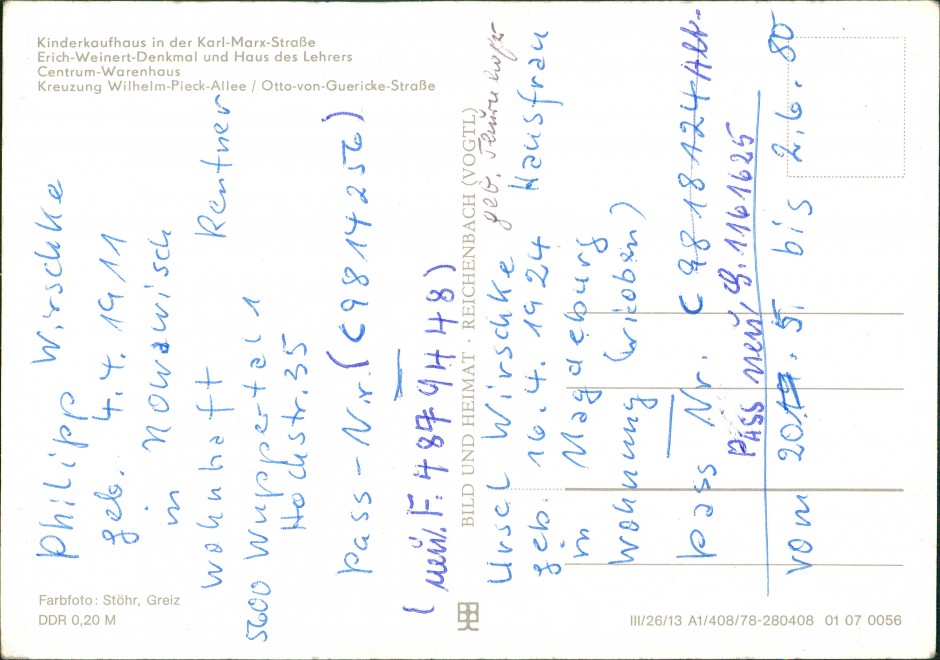 Kinderkaufhaus in der Karl-Marx-Straße
Erich-Weinert-Denkmal und Haus des Lehrers
Centrum-Warenhaus
Kreuzung Wilhelm-Pieck-Allee / Otto-von-Guericke-Straße
Philipp Wirschke
geb. 4.4.1911
in Nowawisch
wohnhaft Rentner
5600 Wuppertal 1
Hochstr. 35
Pass-Nr. (C9814256)
(neü. F: 4879448)
BILD UND HEIMAT · REICHENBACH (VOGTL)
geb.
Ursel Wirschke Hausfrau
geb. 16.4.1924
in Magdeburg
Wohnung (wie oben)
Pass Nr. C 9818124 Alt.
Pass neü G. 1161625
vom 20.5. bis 2.6.80
Farbfoto: Stöhr, Greiz
DDR 0,20 M
III/26/13 A1/408/78-280408 01 07 0056